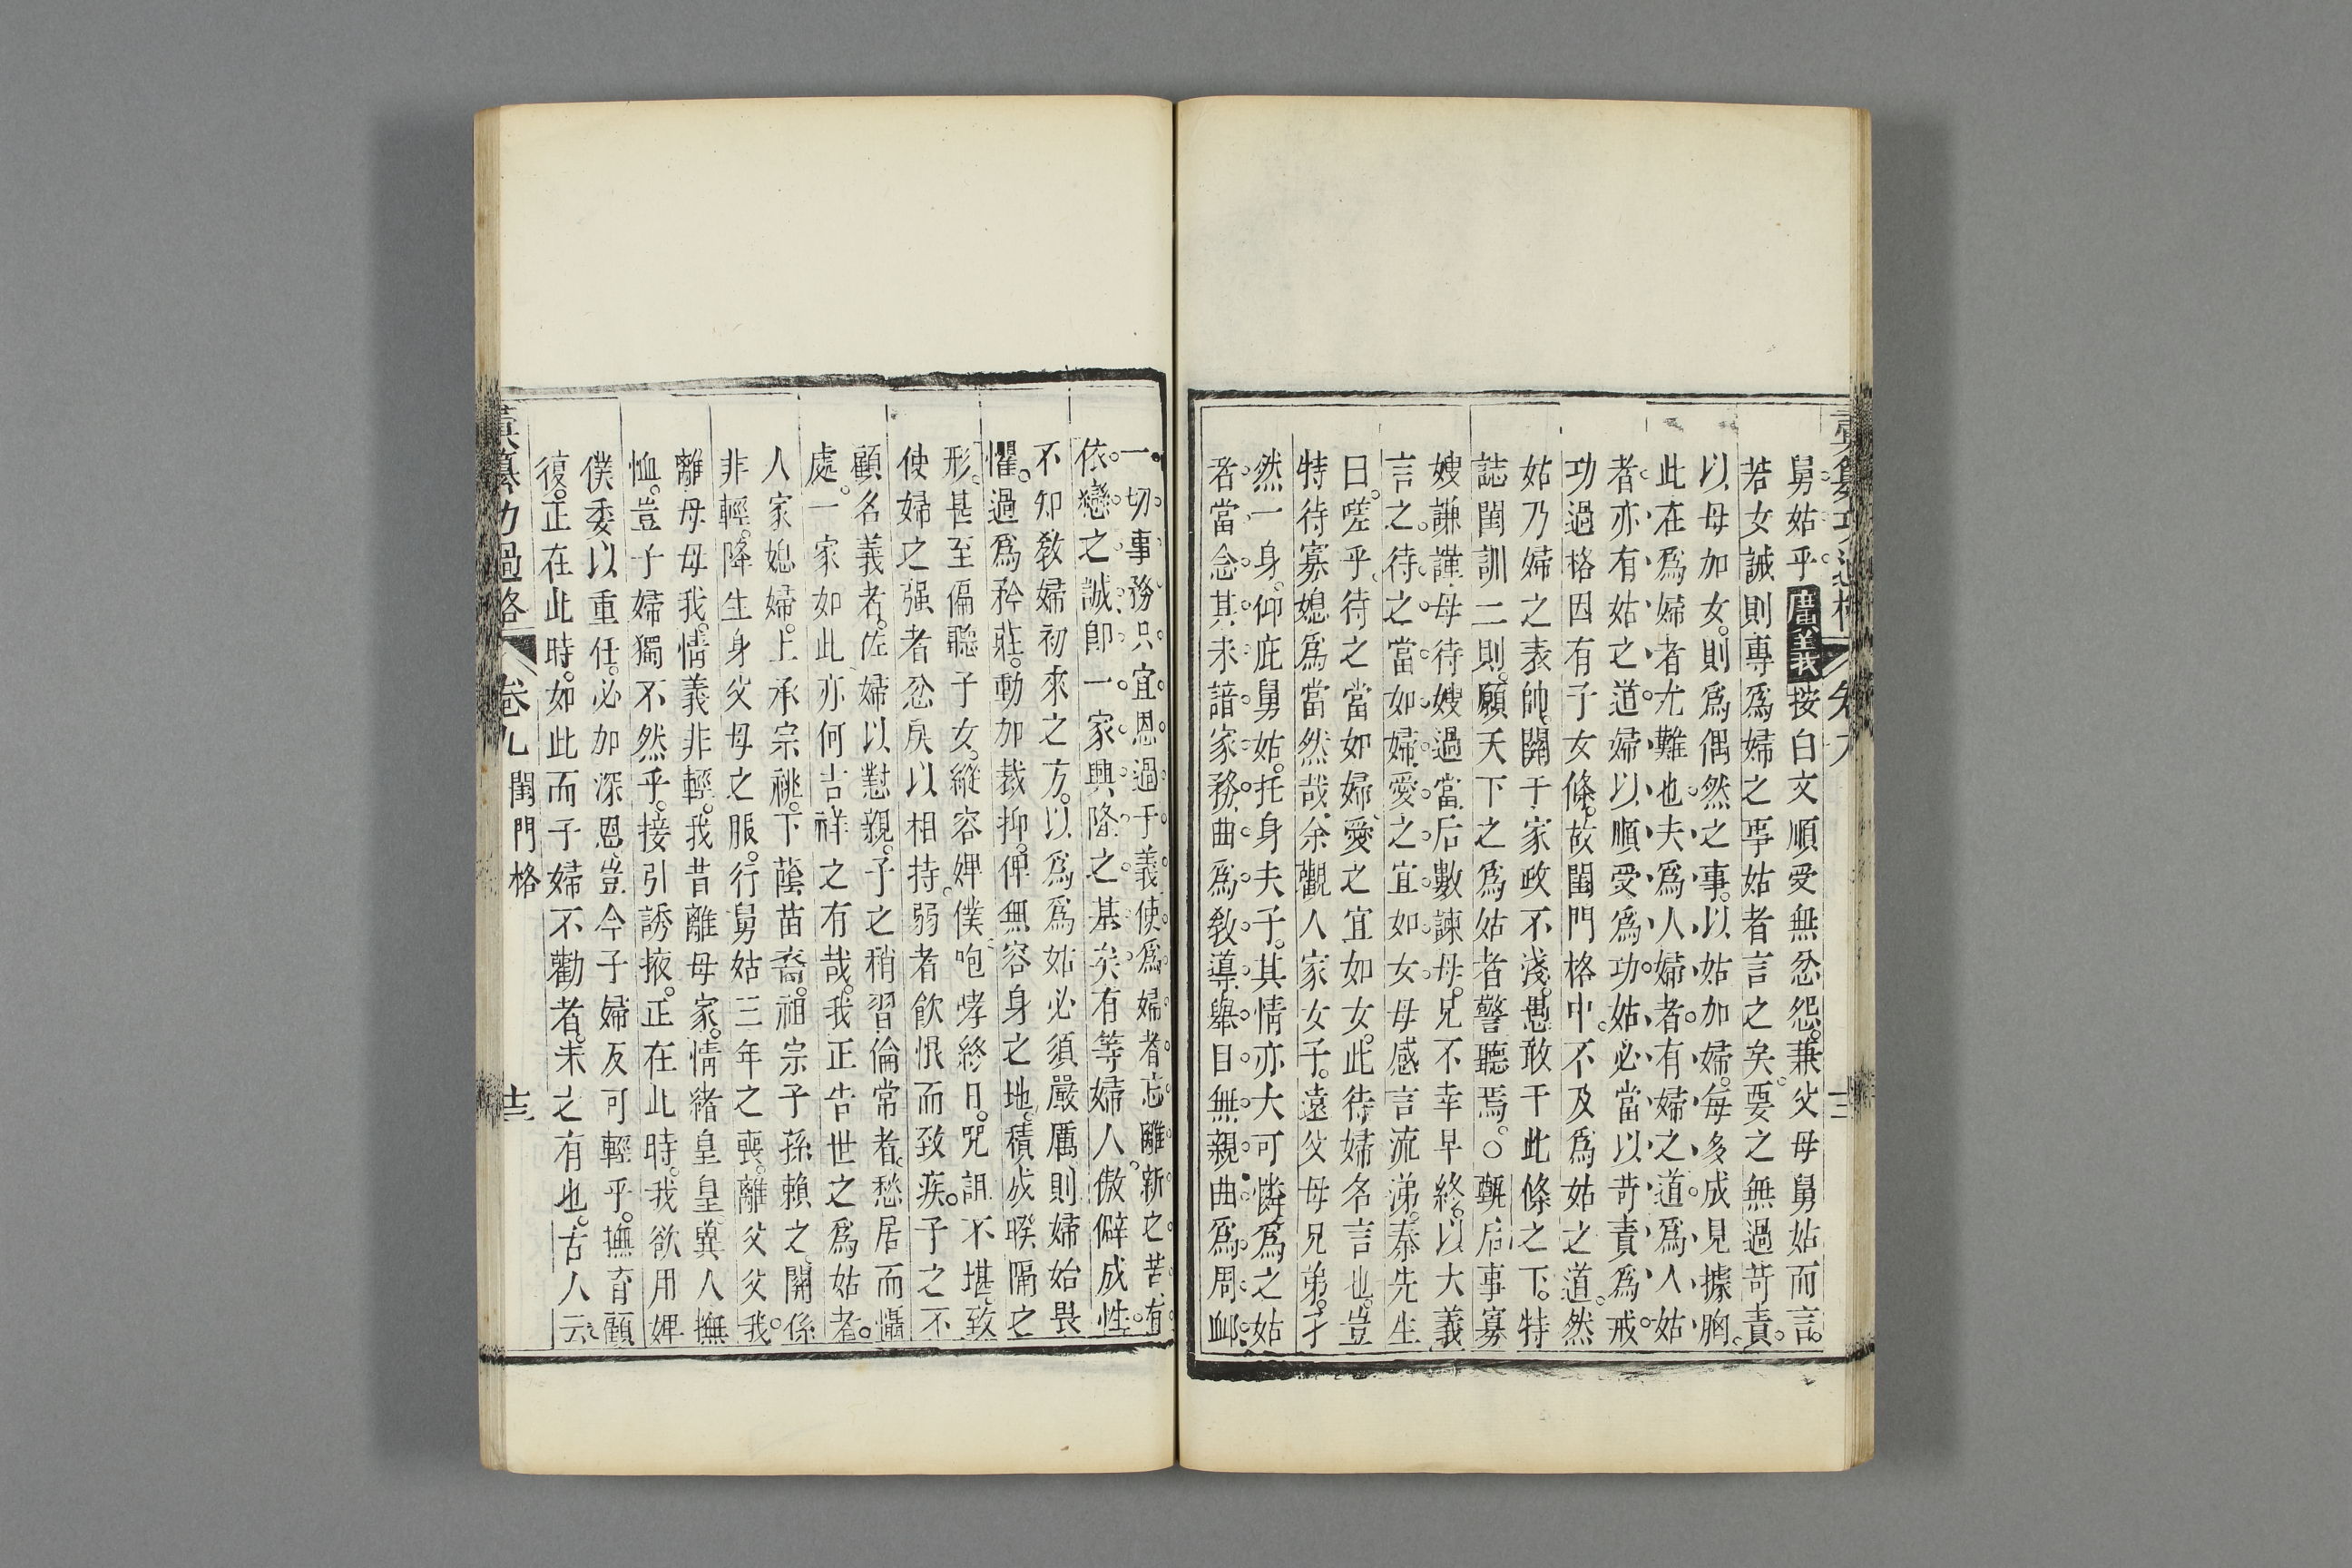 舅姑乎。廣義按白文順受無忿怨。兼父母舅姑而言。
若女誡則專爲婦之事姑者言之矣。要之無過苛責。
以母加女。則爲偶然之事。以姑加婦。每多成見據胸。
此在爲婦者尤難也。夫爲人婦者。有婦之道。爲人姑
者。亦有姑之道。婦以順受爲功。姑必當以苛責爲戒。
功過格因有子女條。故閨門格中。不及爲姑之道。然
姑乃婦之表帥。關于家政不淺。愚敢于此條之下。特
誌閨訓二則。願天下之爲姑者警聽焉。○甄后事寡
嫂謙謹。母待嫂過當。后數諫母。兄不幸早終。以大義
言之。待之當如婦。愛之宜如女。母感言流涕。秦先生
曰。嗟乎。待之當如婦。愛之宜如女。此待婦名言也。豈
特待寡媳爲當然哉。余觀人家女子。遠父母兄弟。孑
然一身。仰庇舅姑。托身夫子。其情亦大可憐。爲之姑
者。當念其未諳家務。曲爲敎導。舉目無親。曲爲周卹。
一切事務。只宜恩過于義。使爲婦者。忘離新之苦。有
依戀之誠。即一家興隆之基矣。有等婦人。傲僻成性。
不知敎婦初來之方。以爲爲姑必須嚴厲。則婦始畏
懼。過爲矜莊。動加裁抑。俾無容身之地。積成睽隔之
形。甚至偏聽子女。縱容婢僕。咆哮終日。咒詛不堪。致
使婦之强者忿戾以相持。弱者飮恨而致疾。子之不
顧名義者。佐婦以懟親。子之稍習倫常者。愁居而懾
處。一家如此。亦何吉祥之有哉。我正告世之爲姑者。
人家媳婦。上承宗祧。下蔭苗裔。祖宗子孫賴之。關係
非輕。降生身父母之服。行舅姑三年之喪。離父父我。
離母母我。情義非輕。我昔離母家。情緒皇皇。冀人撫
恤。豈子婦獨不然乎。接引誘掖。正在此時。我欲用婢
僕委以重任。必加深恩。豈今子婦反可輕乎。撫育顧
復。正在此時。如此而子婦不勸者。未之有也。古人云。
彙纂功過格
卷九 閨門格
十三